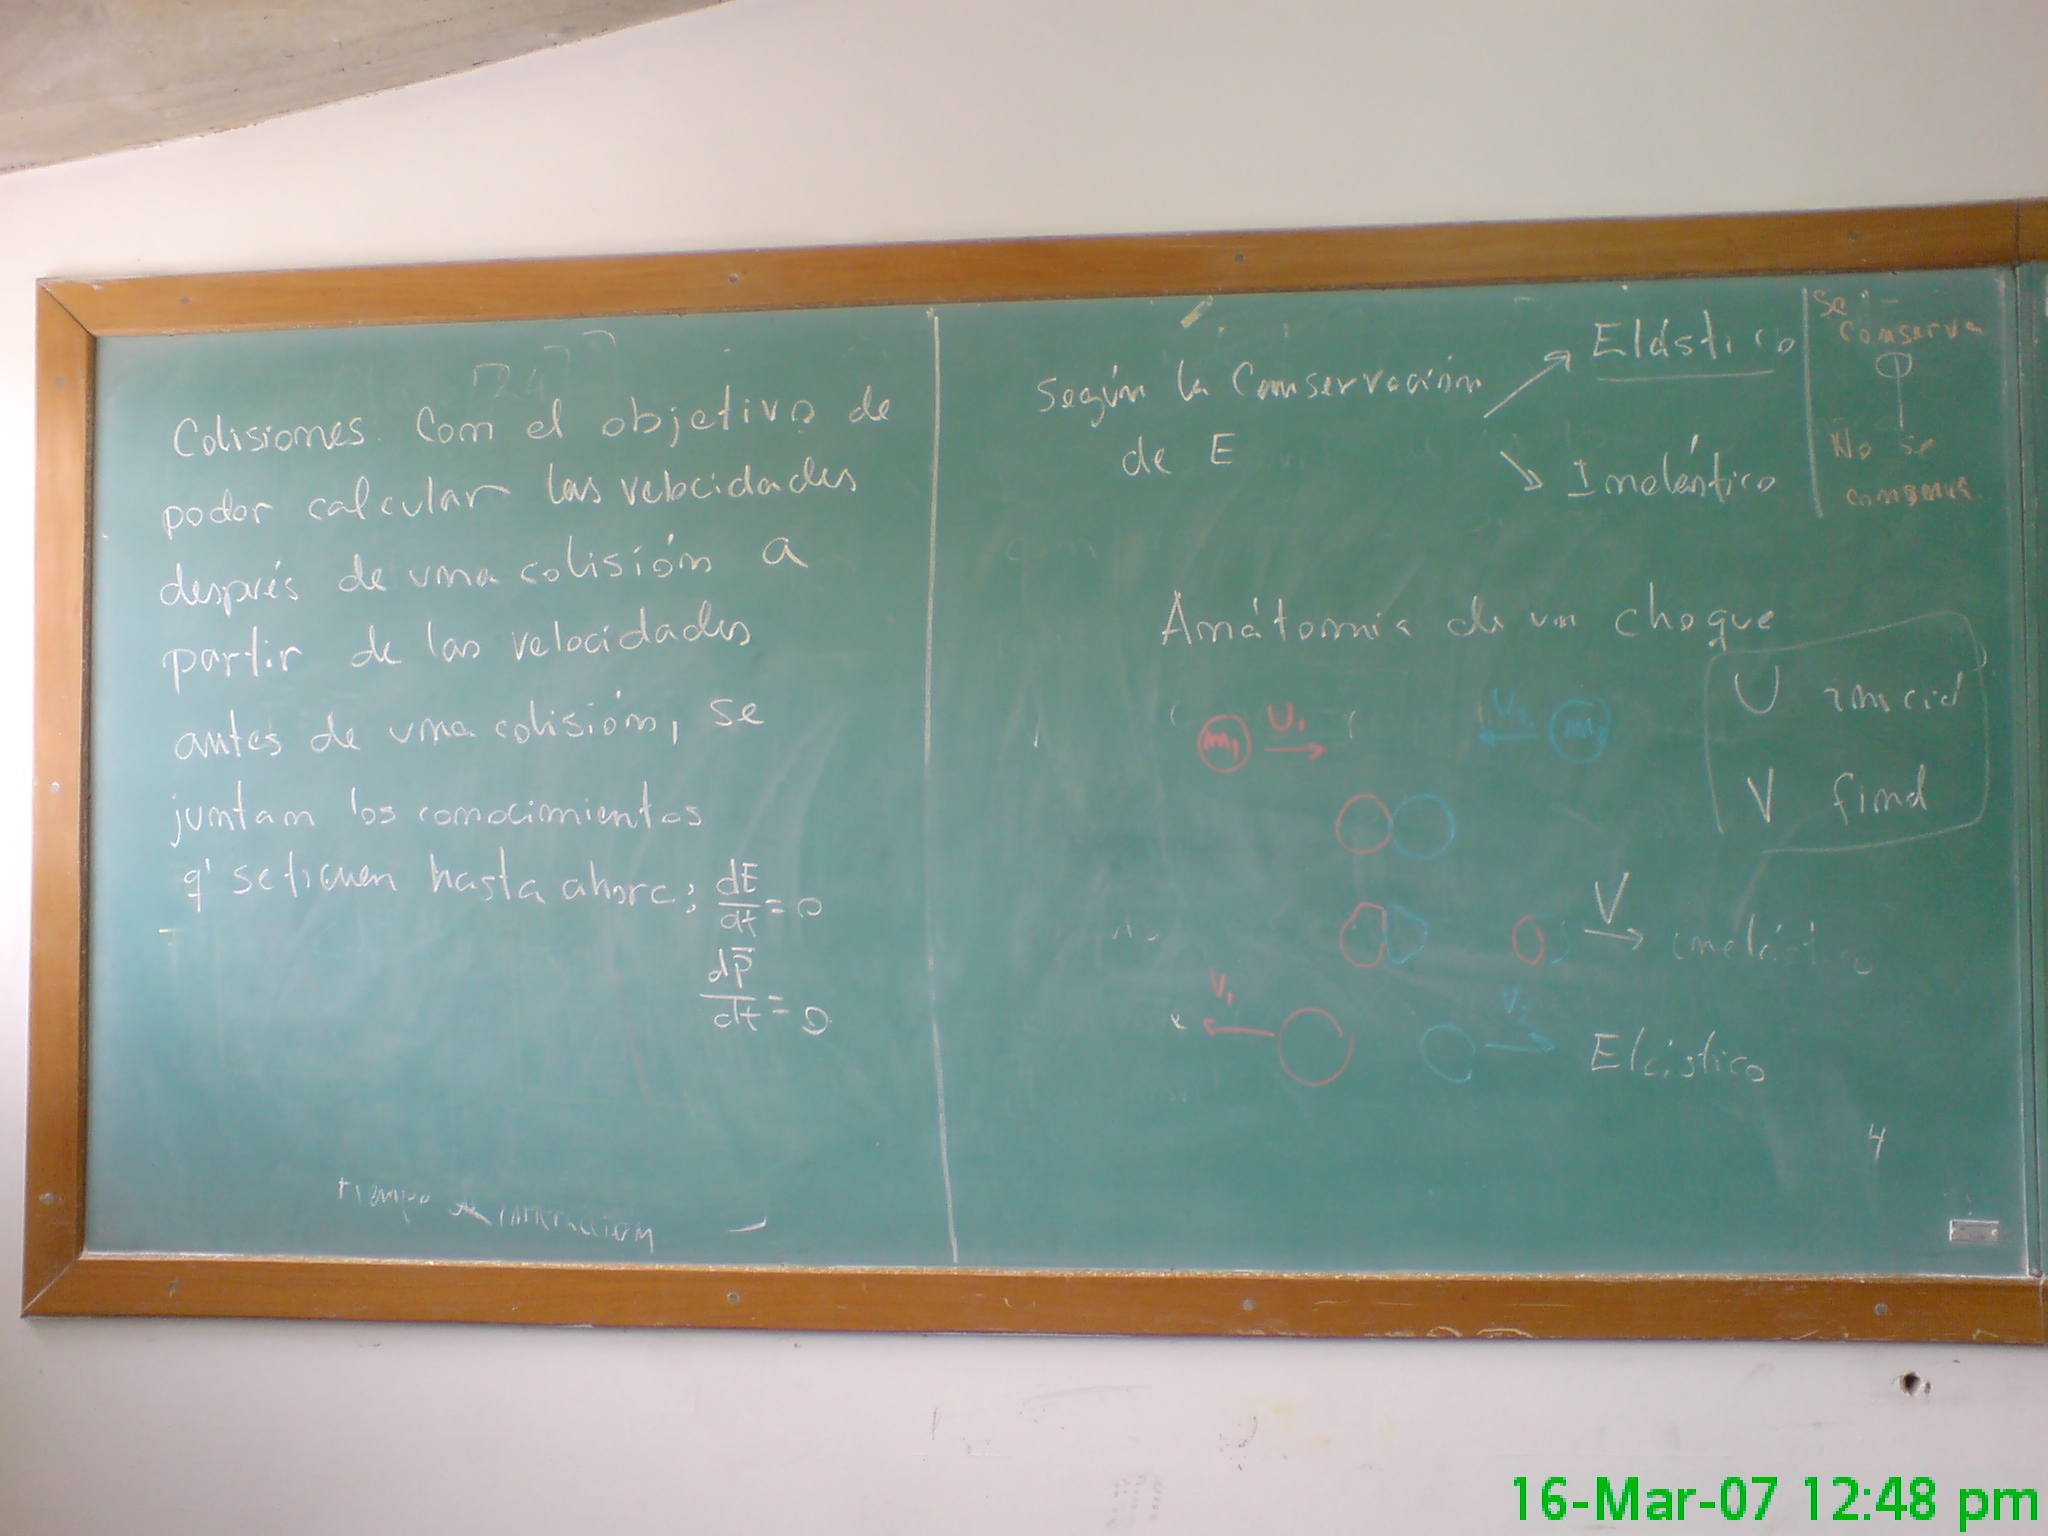 Colisiones. Con el objetivo de
poder calcular las velocidades
después de una colisión a
partir de las velocidades
antes de una colisión, se
juntan los conocimientos
q' se tienen hasta ahora;
dE/dt = 0
dp̄/dt = 0
tiempo de interaccion
Según la Conservación
de E
Elástico
Inelástico
Se
conserva
No se
conserva
Anátomia de un choque
m₁ U₁
U₂ m₂
U inicial
V final
V inelástico
V₁ V₂ Elástico
4
16-Mar-07 12:48 pm